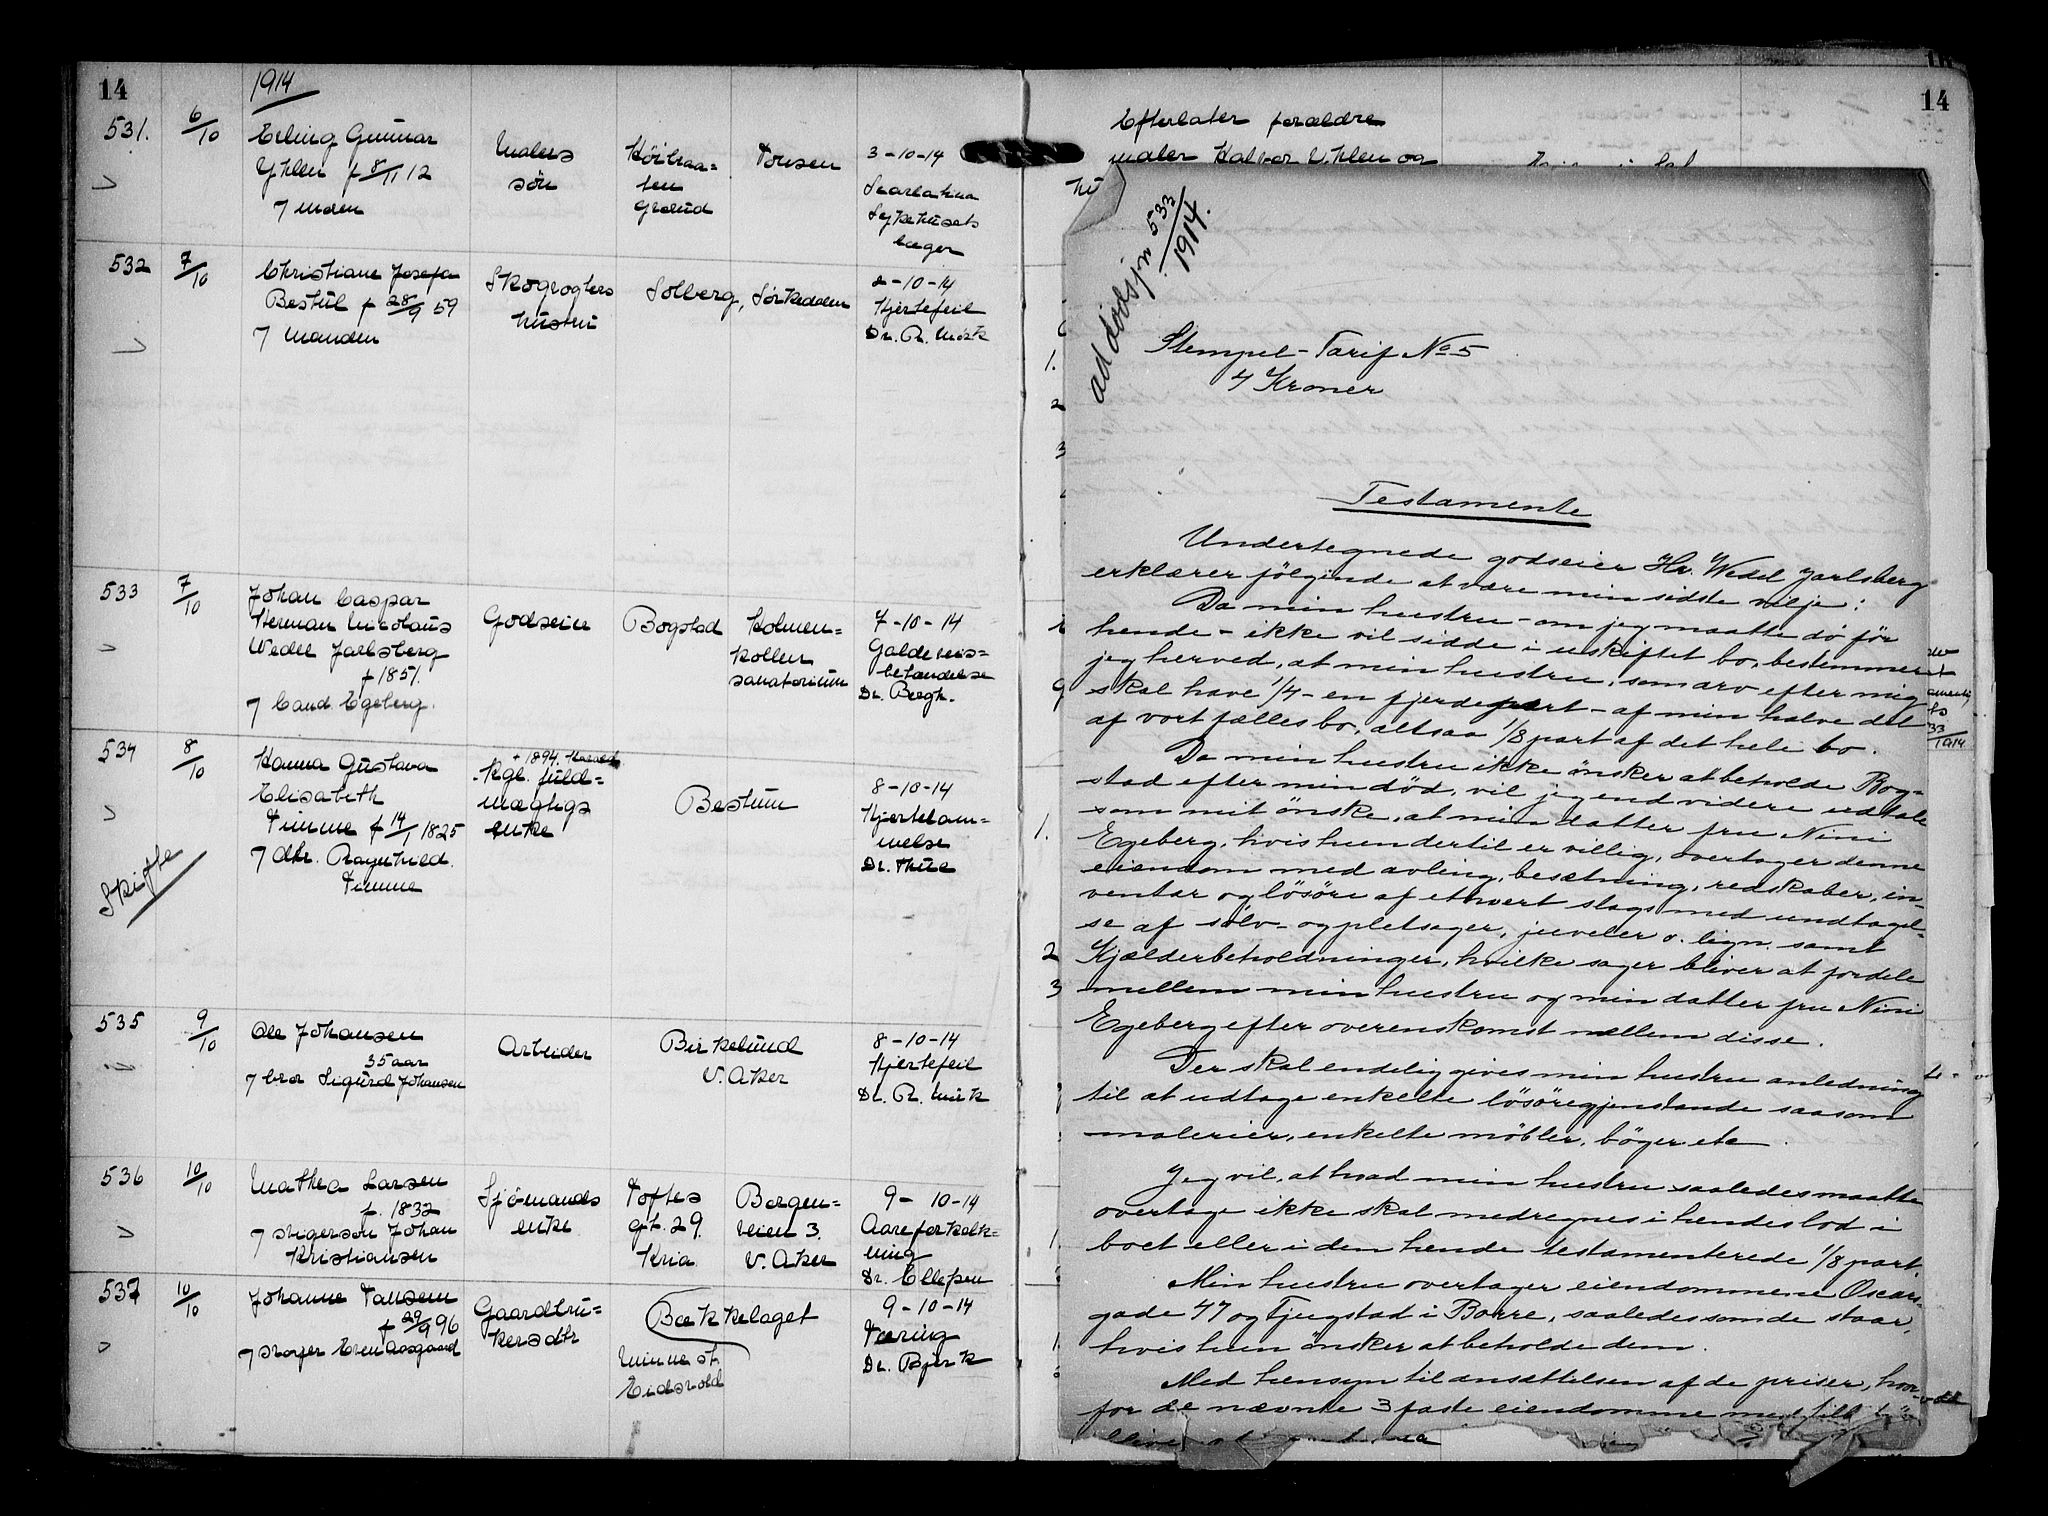 14
1914
531.
6/10
Erling Gunnar
Uhlen f 8/11 12
7 moren
Malers
søn
Grorud
Tonsen
3-10-14
Scarlatina
Sykehusets
læger
532
7/10
Christiane Josefa
Bestul f 28/9 59
7 manden
Skogvogters
hustru
Solberg, Sørkedalen
2-10-14
Hjertefeil
Dr. R. Mörk
533
7/10
Johan Caspar
Herman Nicolaus
Wedel Jarlsberg
f 1851.
7 Cand. Egeberg.
Godseier
Bogstad
Holmen=
kollen
sanatorium
7-10-14
Galdeveis=
betændelse
Dr. Bergh.
534
8/10
Hanna Gustava
Elisabeth
Timme f 14/1 1825
7 dtr. Ragnhild
Timme
Skifte
+ 1894. Harald
Kgl. fuld=
mægtigs
enke
Bestum
8-10-14
Hjertelam=
melse
Dr. Thue
535
9/10
Ole Johansen
35 aar
7 bror Sigurd Johansen
Arbeider
Birkelund
V. Aker
8-10-14
Hjertefeil
Dr. R. Mörk
536
10/10
Mathea Larsen
f. 1832
7 svigersøn Johan
Kristiansen
Sjømands
enke
Toftes
gt. 29.
Kria.
Bergen=
veien 3.
V. Aker
9-10-14
Aareforkalk=
ning
Dr. Ellefsen
537
10/10
f 29/9 96
7 svoger Even Aasgaard
Gaardbru=
kersdtr
Bækkelaget
Minne st.
Eidsvold
9-10-14
Tæring
Dr. Bjerk
14
Efterlater forældre
maler Halvor Uhlen og
ad dødsjn 533/1914.
Stempel-Tarif No 5
4 Kroner
Testamente
Undertegnede godseier Hr. Wedel Jarlsberg
erklærer følgende at være min sidste vilje:
Da min hustru - om jeg maatte dø før
hende - ikke vil sidde i uskiftet bo, bestemmer
jeg herved, at min hustru, som arv efter mig
skal have 1/4 - en fjerdepart - af min halve del
af vort fælles bo, altsaa 1/8 part af det hele bo.
Da min hustru ikke ønsker at beholde Bog-
stad efter min død, vil jeg endvidere udtale
som mit ønske, at min datter fru Nini
Egeberg, hvis hun dertil er villig, overtager denne
eiendom med avling, besætning, redskaber, in-
ventar og løsøre af ethvert slags med undtagel-
se af sølv- og pletsager, juveler o. lign. samt
Kjælderbeholdninger, hvilke sager bliver at fordele
mellem min hustru og min datter fru Nini
Egeberg efter overenskomst mellem disse.
Der skal endelig gives min hustru anledning
til at udtage enkelte løsøregjenstande saasom
malerier, enkelte møbler, bøger etc.
Jeg vil, at hvad min hustru saaledes maatte
overtage ikke skal medregnes i hendes lod i
boet eller i den hende testamenterede 1/8 part.
Min hustru overtager eiendommene Oscars-
gade 47 og Fjugstad i Borre, saaledes som de staar,
hvis hun ønsker at beholde dem.
Med hensyn til ansættelsen af de priser, hvor-
for de nævnte 3 faste eiendomme med